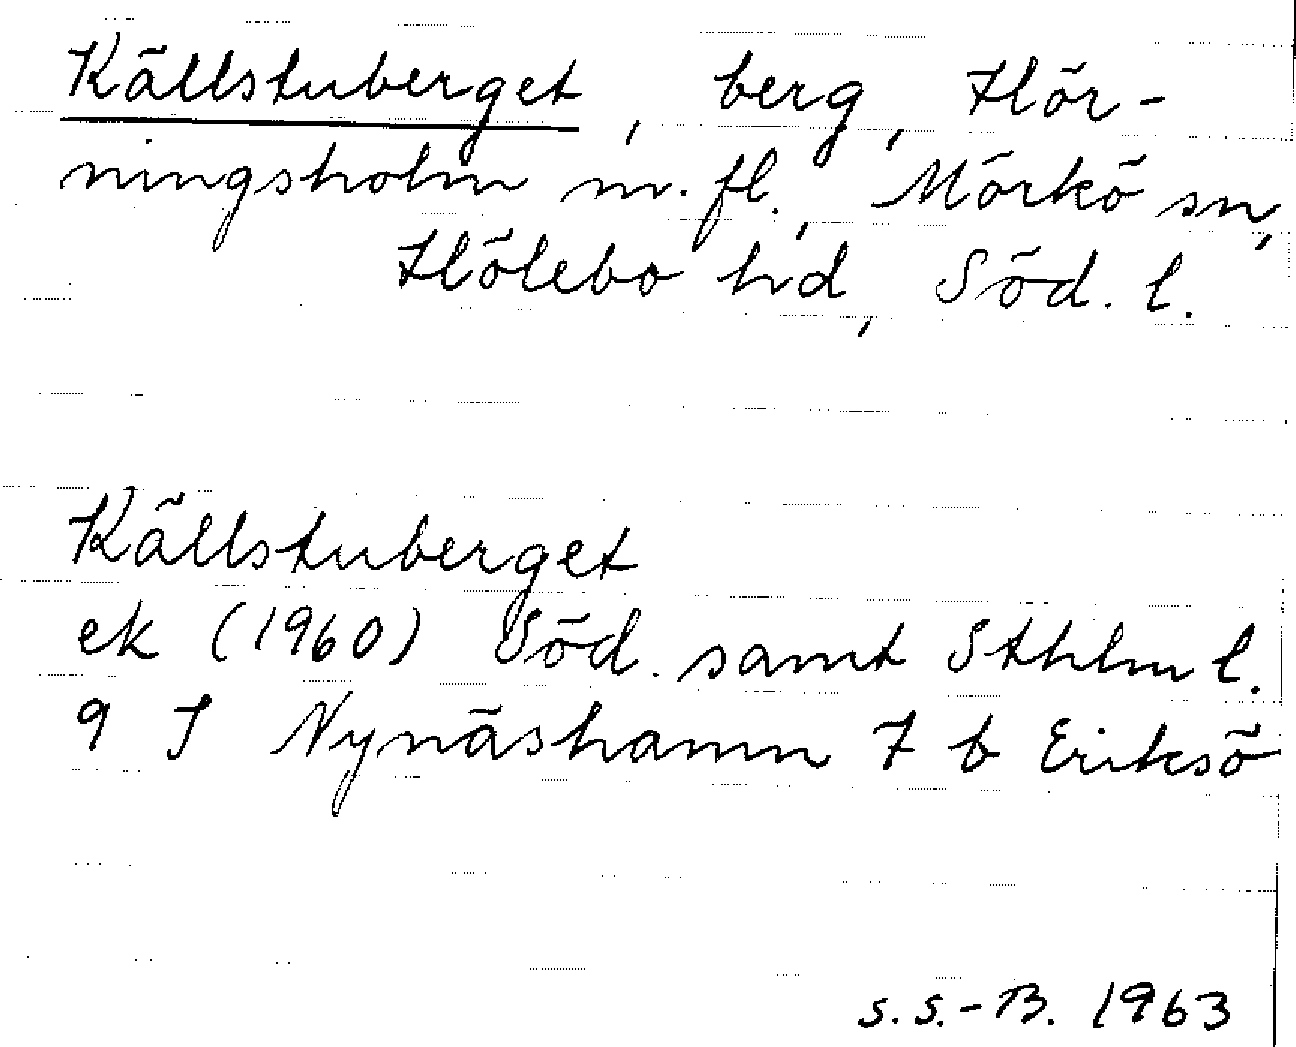 Källstuberget, berg, Hör-
ningsholm m. fl., Mörkö sn,
Hölebo hd, Söd. l.
Källstuberget
ek (1960) Söd. samt Sthlm l.
9 I Nynäshamn 7 b Eriksö
S.S.-B. 1963